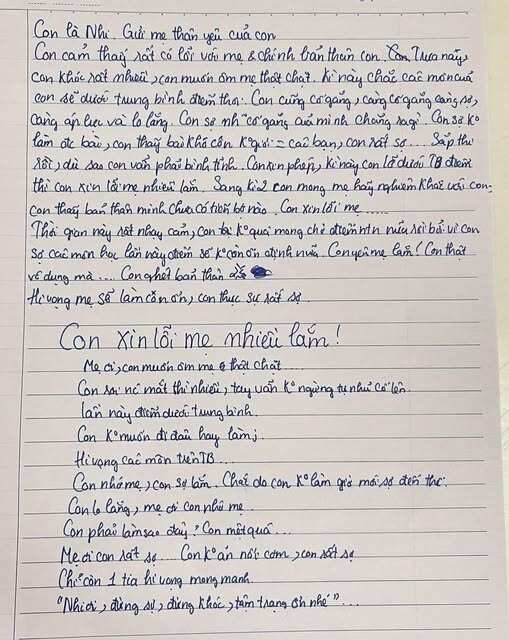 Con là Nhi. Gửi mẹ thân yêu của con
Con cảm thấy rất có lỗi với mẹ & chính bản thân con. Trưa nay,
con khóc rất nhiều, con muốn ôm mẹ thật chặt. Kì này chắc các môn của
con sẽ dưới trung bình điểm thôi. Con cũng cố gắng, càng cố gắng càng sợ,
càng áp lực và lo lắng. Con sợ những cố gắng của mình chẳng là gì. Con sợ K°
làm đc bài, con thấy bài khó còn K° giỏi = các bạn, con rất sợ... Sắp thi
rồi, dù sao con vẫn phải bình tĩnh. Con xin phép, kì này con lỡ dưới TB điểm
thì con xin lỗi mẹ nhiều lắm. Sang kì 2 con mong mẹ hãy nghiêm khắc với con.
con thấy bản thân mình chưa có tiến bộ nào. Con xin lỗi mẹ.....
Thời gian này rất nhạy cảm, con K° quá mong chờ điểm ntn nữa rồi bởi vì con
sợ các môn học lần này điểm số K° còn ổn định nữa. Con yêu mẹ lắm! Con thật
vô dụng mà... Con ghét bản thân
Hi vọng mẹ sẽ làm còn ổn, con thực sự rất sợ.
Con xin lỗi mẹ nhiều lắm!
Mẹ ơi, con muốn ôm mẹ thật chặt....
Con rơi nc mắt thì nhiều, tay vẫn K° ngừng tự nhủ cố lên
lần này điểm dưới trung bình.
Con K° muốn đi đâu hay làm j
Hi vọng các môn trên TB...
Con nhớ mẹ, con sợ lắm. Chắc do con K° làm giờ mới sợ đến thế.
Con lo lắng, mẹ ơi con nhớ mẹ.
Con phải làm sao đây? Con mệt quá...
Mẹ ơi con rất sợ... Con K° ăn nổi cơm, con rất sợ
Chỉ còn 1 tia hi vọng mong manh.
"Nhi ơi, đừng sợ, đừng khóc, tâm trạng ổn nhé"...